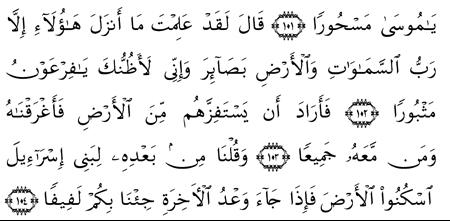 يَـٰمُوسَىٰ مَسْحُورًا ﴿١٠١﴾ قَالَ لَقَدْ عَلِمْتَ مَا أَنزَلَ هَـٰٓؤُلَآءِ إِلَّا
رَبُّ ٱلسَّمَـٰوَٰتِ وَٱلْأَرْضِ بَصَآئِرَ وَإِنِّى لَأَظُنُّكَ يَـٰفِرْعَوْنُ
مَثْبُورًا ﴿١٠٢﴾ فَأَرَادَ أَن يَسْتَفِزَّهُم مِّنَ ٱلْأَرْضِ فَأَغْرَقْنَـٰهُ
وَمَن مَّعَهُۥ جَمِيعًا ﴿١٠٣﴾ وَقُلْنَا مِنۢ بَعْدِهِۦ لِبَنِىٓ إِسْرَٰٓءِيلَ
ٱسْكُنُوا۟ ٱلْأَرْضَ فَإِذَا جَآءَ وَعْدُ ٱلْأَخِرَةِ جِئْنَا بِكُمْ لَفِيفًا ﴿١٠٤﴾